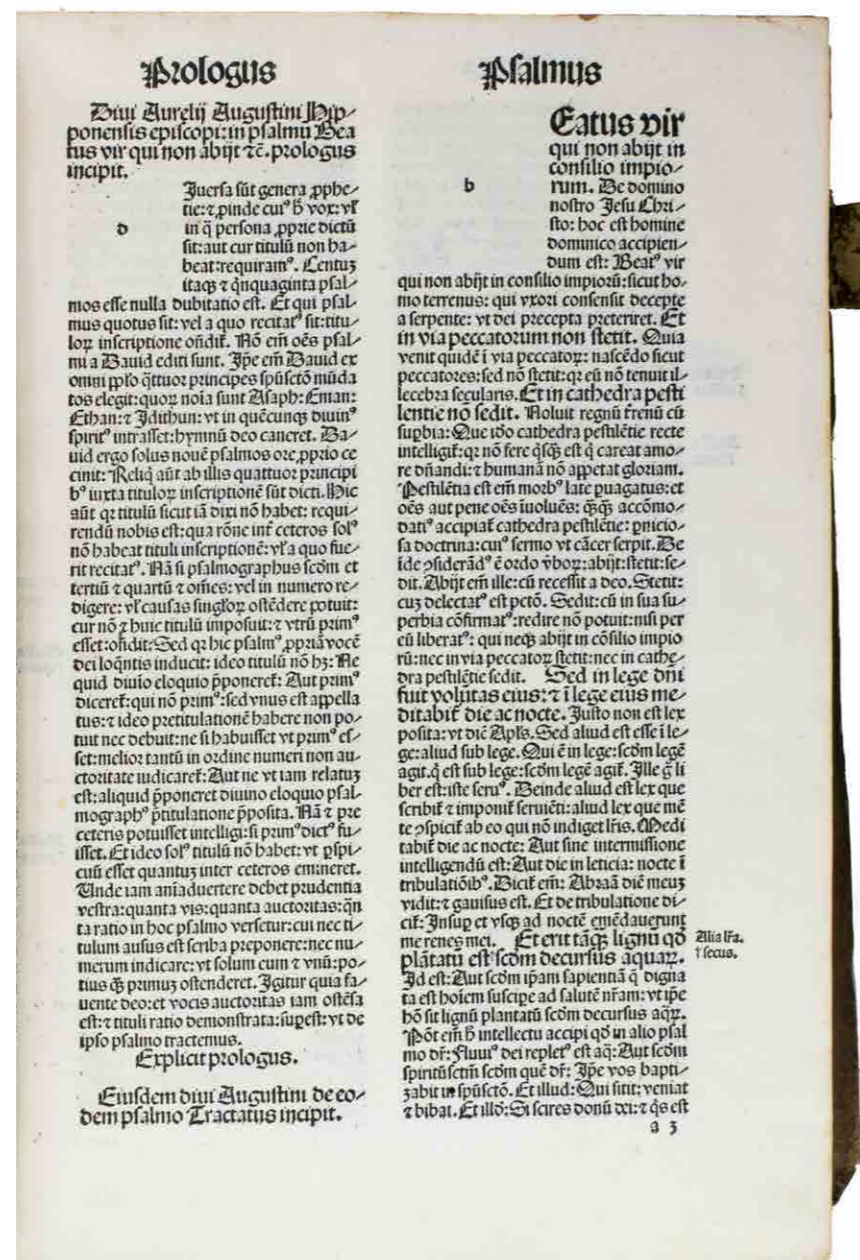 Prologus
Diui Aurelij Augustini Hip⸗
ponensis episcopi: in psalmũ Bea
tus vir qui non abijt ⁊c̃. prologus
incipit.
d
Iuersa sũt genera ꝓphe⸗
tie: ⁊ ꝓinde cuiꝰ h̃ vox: vl̃
in q̃ persona ꝓprie dictũ
sit: aut cur titulũ non ha⸗
beat: requiramꝰ. Centuʒ
itaqʒ ⁊ q̃nquaginta psal⸗
mos esse nulla dubitatio est. Et qui psal⸗
mus quotus sit: vel a quo recitatꝰ sit: titu⸗
loꝝ inscriptione oñdit̃. Nõ em̃ oẽs psal⸗
mi a Dauid editi sunt. Ipe em̃ Dauid ex
omni pp̃lo q̃ttuor principes spũsctõ mũda
tos elegit: quoꝝ noĩa sunt Asaph: Eman:
Ethan: ⁊ Idithun: vt in quẽcunqʒ diuinꝰ
spiritꝰ intrasset: hymnũ deo caneret. Da⸗
uid ergo solus nouẽ psalmos ore ꝓprio ce
cinit: Reliq̃ aũt ab illis quattuor principi
bꝰ iuxta tituloꝝ inscriptionẽ sũt dicti. Hic
aũt qꝛ titulũ sicut iã dixi nõ habet: requi⸗
rendũ nobis est: qua rõne int̃ ceteros solꝰ
nõ habeat tituli inscriptionẽ: vl̃ a quo fue⸗
rit recitatꝰ. Nã si psalmographus scd̃m et
tertiũ ⁊ quartũ ⁊ om̃es: vel in numero re⸗
digere: vl̃ causas singl̃oꝝ ostẽdere potuit:
cur nõ ⁊ huic titulũ imposuit: ⁊ vtrũ primꝰ
esset: oñdit: Sed qꝛ hic psalmꝰ ꝓpriã vocẽ
dei loq̃ntis inducit: ideo titulũ nõ hʒ: Ne
quid diuĩo eloquio p̃poneret̃: Aut primꝰ
diceret̃: qui nõ primꝰ: sed vnus est appella
tus: ⁊ ideo pretitulationẽ habere non po⸗
tuit nec debuit: ne si habuisset vt primꝰ es⸗
set: melior tantũ in ordine numeri non au⸗
ctoritate iudicaret̃: Aut ne vt iam relatuʒ
est: aliquid p̃poneret diuino eloquio psal⸗
mographꝰ p̃titulatione p̃posita. Nã ⁊ pre
ceteris potuisset intelligi: si primꝰ dictꝰ fu⸗
isset. Et ideo solꝰ titulũ nõ habet: vt ꝑspi⸗
cuũ esset quantuʒ inter ceteros emineret.
Unde iam anĩaduertere debet prudentia
vestra: quanta vis: quanta auctoritas: q̃n
ta ratio in hoc psalmo versetur: cui nec ti⸗
tulum ausus est scriba preponere: nec nu⸗
merum indicare: vt solum eum ⁊ vnũ: po⸗
tius q̃ʒ primuʒ ostenderet. Igitur quia fa⸗
uente deo: et vocis auctoritas iam ostẽsa
est: ⁊ tituli ratio demonstrata: suꝑest: vt de
ipso psalmo tractemus.
Explicit prologus.
Eiusdem diui Augustini de eo⸗
dem psalmo Tractatus incipit.
Psalmus
b
Eatus vir
qui non abijt in
consilio impio⸗
rum. De domino
nostro Jesu Chri⸗
sto: hoc est homine
dominico accipien⸗
dum est: Beatꝰ vir
qui non abijt in consilio impiorũ: sicut ho⸗
mo terrenus: qui vxori consensit decepte
a serpente: vt dei precepta preteriret. Et
in via peccatorum non stetit. Quia
venit quidẽ ĩ via peccatoꝝ: nascẽdo sicut
peccatores: sed nõ stetit: qꝛ eũ nõ tenuit il⸗
lecebra secularis. Et in cathedra pesti
lentie nõ sedit. Noluit regnũ t̃renũ cũ
suꝑbia: Que iõo cathedra pestilẽtie recte
intelligit̃: qꝛ nõ fere q̃sqʒ est q̃ careat amo⸗
re dñandi: ⁊ humanã nõ appetat gloriam.
Pestilẽtia est em̃ morbꝰ late ꝑuagatus: et
oẽs aut pene oẽs ĩuoluẽs: q̃ʒq̃ʒ accõmo⸗
datꝰ accipiat̃ cathedra pestilẽtie: ꝑnicio⸗
sa doctrina: cuiꝰ sermo vt cãcer serpit. De
ĩde ꝯsiderãdꝰ ẽ ordo v̓boꝝ: abijt: stetit: se⸗
dit. Abijt em̃ ille: cũ recessit a deo. Stetit:
cuʒ delectatꝰ est pctõ. Sedit: cũ in sua su⸗
perbia cõfirmatꝰ: redire nõ potuit: nisi per
eũ liberatꝰ: qui neqʒ abijt in cõsilio impio
rũ: nec in via peccatoꝝ stetit: nec in cathe⸗
dra pestilẽtie sedit. Sed in lege dñi
fuit volũtas eius: ⁊ ĩ lege eius me⸗
ditabit̃ die ac nocte. Justo non est lex
posita: vt diẽ Apl̃s. Sed aliud est esse ĩ le⸗
ge: aliud sub lege. Qui ẽ in lege: scd̃m legẽ
agit. q̃ est sub lege: scd̃m legẽ agit̃. Ille g̃ li
ber est: iste seruꝰ. Deinde aliud est lex que
scribit̃ ⁊ imponit̃ seruiẽti: aliud lex que mẽ
te ꝯspicit̃ ab eo qui nõ indiget lr̃is. Medi
tabit̃ die ac nocte: Aut sine intermissione
intelligendũ est: Aut die in leticia: nocte ĩ
tribulatiõibꝰ. Dicit̃ em̃: Abraã diẽ meuʒ
vidit: ⁊ gauisus est. Et de tribulatione di⸗
cit̃: Insuꝑ et vsqʒ ad noctẽ emẽdauerunt
me renes mei. Et erit tãqʒ lignũ qđ
plãtatũ est scd̃m decursus aquaꝝ.
Id est: Aut scd̃m ip̃am sapientiã q̃ digna
ta est hoĩem suscipe ad salutẽ nr̃am: vt ip̃e
hõ sit lignũ plantatũ scd̃m decursus aq̃ꝝ.
Põt em̃ h̃ intellectu accipi qđ in alio psal
mo dr̃: Fluuiꝰ dei repletꝰ est aq̃: Aut scd̃m
spiritũ sctm̃ scd̃m quẽ dr̃: Ip̃e vos bapti⸗
zabit in spũsctõ. Et illud: Qui sitit: veniat
⁊ bibat. Et illđ: Si scires donũ dei: ⁊ q̃s est
a 3
Alia lr̃a.
ĩ secus.